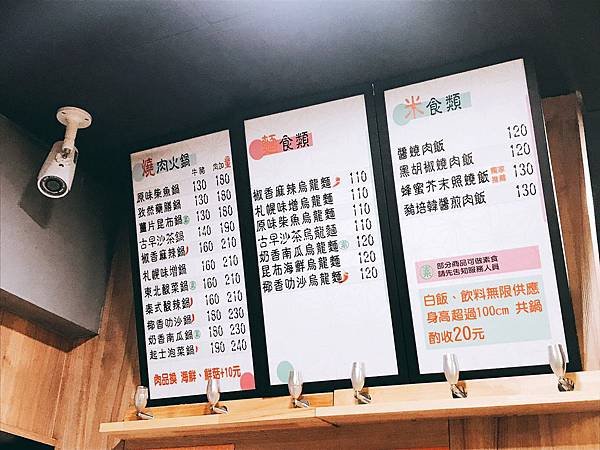 燒肉火鍋 牛豬 肉加量
原味柴魚鍋 130 180
孜然藥膳鍋 130 180
薑片昆布鍋 素 140 190
古早沙茶鍋 140 190
椒香麻辣鍋 160 210
札幌味增鍋 160 210
東北酸菜鍋 素 160 210
泰式酸辣鍋 160 210
椰香叻沙鍋 180 230
奶香南瓜鍋 素 180 230
起士泡菜鍋 190 240
肉品換 海鮮、鮮菇+10元
麵食類
椒香麻辣烏龍麵 110
札幌味增烏龍麵 110
原味柴魚烏龍麵 110
古早沙茶烏龍麵 110
奶香南瓜烏龍麵 素 120
昆布海鮮烏龍麵 120
椰香叻沙烏龍麵 120
米食類
醬燒肉飯 120
黑胡椒燒肉飯 120
蜂蜜芥末照燒飯 獨家推薦 130
豬培韓醬煎肉飯 130
素 部分商品可做素食
請先告知服務人員
白飯、飲料無限供應
身高超過100cm 共鍋
酌收20元